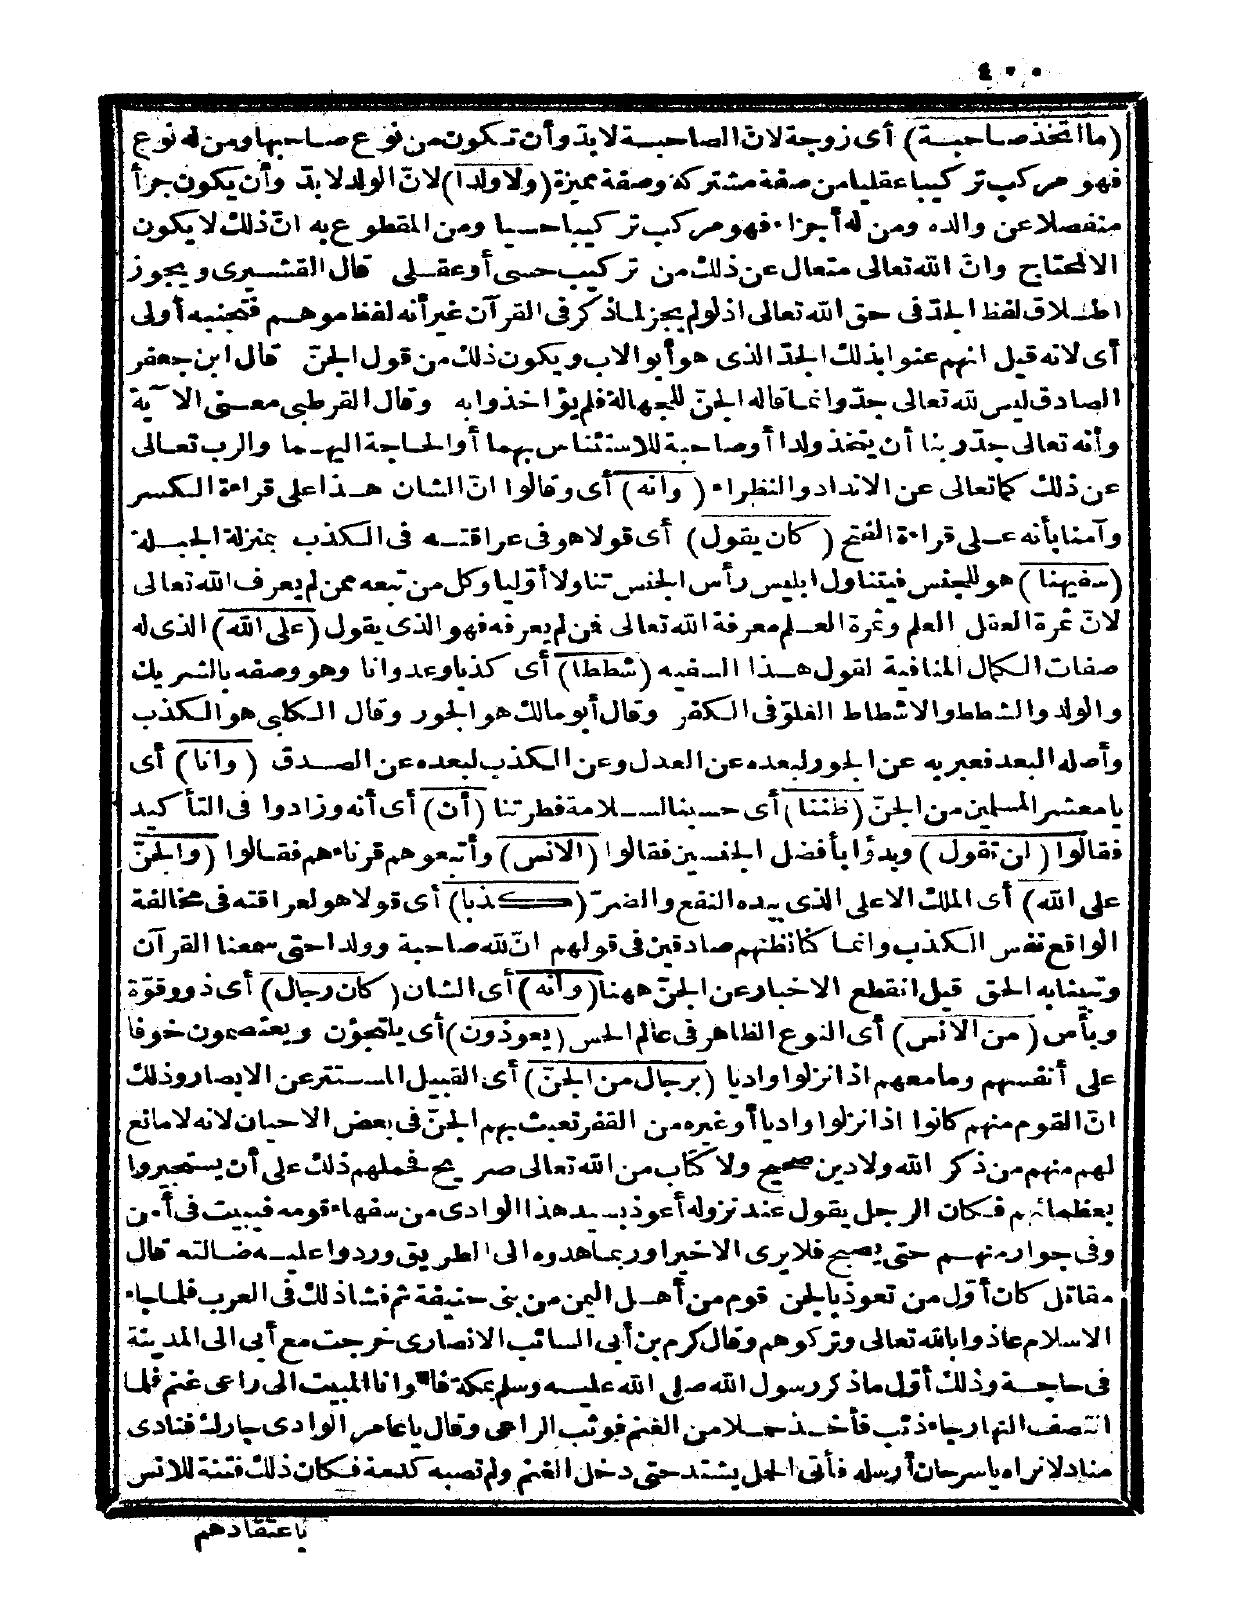 ٤٠٠
(ما اتخذ صاحبة) أى زوجة لانّ الصاحبة لا بدّ وأن تكون من نوع صاحبها ومن له نوع
فهو مركب تركيبا عقليا من صفة مشتركة وصفة مميزة (ولا ولدا) لانّ الولد لا بدّ وأن يكون جزأ
منفصلا عن والده ومن له أجزاء فهو مركب تركيبا حسيا ومن المقطوع به انّ ذلك لا يكون
الا لمحتاج وانّ الله تعالى متعال عن ذلك من تركيب حسى أو عقلى قال القشيرى ويجوز
اطلاق لفظ الجدّ فى حق الله تعالى اذ لو لم يجز لما ذكر فى القرآن غير أنه لفظ موهم فتجنبه أولى
أى لانه قيل انهم عنوا بذلك الجدّ الذى هو أبو الاب ويكون ذلك من قول الجنّ قال ابن جعفر
الصادق ليس لله تعالى جدّ وانما قاله الجنّ للجهالة فلم يؤاخذوا به وقال القرطبى معنى الآية
وأنه تعالى جدّ ربنا أن يتخذ ولدا أو صاحبة للاستئناس بهما أو الحاجة اليهما والرب تعالى
عن ذلك كما تعالى عن الانداد والنظراء (وانه) أى وقالوا انّ الشان هذا على قراءة الكسر
وآمنا بأنه على قراءة الفتح (كان يقول) أى قولا هو فى عراقته فى الكذب بمنزلة الجبلة
(سفيهنا) هو للجنس فيتناول ابليس رأس الجنس تناولا أوّليا وكل من تبعه ممن لم يعرف الله تعالى
لانّ ثمرة العقل العلم وثمرة العلم معرفة الله تعالى فمن لم يعرفه فهو الذى يقول (على الله) الذى له
صفات الكمال المنافية لقول هذا السفيه (شططا) أى كذبا وعدوانا وهو وصفه بالشريك
والولد والشطط والاشطاط الغلوّ فى الكفر وقال أبو مالك هو الجور وقال الكلبى هو الكذب
وأصله البعد فعبر به عن الجور لبعده عن العدل وعن الكذب لبعده عن الصدق (وانا) أى
يا معشر المسلمين من الجنّ (ظننا) أى حسبنا لسلامة فطرتنا (أن) أى أنه وزادوا فى التأكيد
فقالوا (لن تقول) وبدؤا بأفضل الجنسين فقالوا (الانس) وأتبعوهم قرناءهم فقالوا (والجنّ
على الله) أى الملك الاعلى الذى بيده النفع والضرّ (كذبا) أى قولا هو لعراقته فى مخالفة
الواقع نفس الكذب وانما كنا نظنهم صادقين فى قولهم انّ لله صاحبة وولدا حتى سمعنا القرآن
وتبينا به الحق قيل انقطع الاخبار عن الجنّ ههنا (وأنه) أى الشان (كان رجال) أى ذوو قوّة
وبأس (من الانس) أى النوع الظاهر فى عالم الحس (يعوذون) أى يلتجؤن ويعتصمون خوفا
على أنفسهم وما معهم اذا نزلوا واديا (برجال من الجنّ) أى القبيل المستتر عن الابصار وذلك
انّ القوم منهم كانوا اذا نزلوا واديا أو غيره من القفر تعبث بهم الجنّ فى بعض الاحيان لانه لا مانع
لهم منهم من ذكر الله ولا دين صحيح ولا كتاب من الله تعالى صريح فحملهم ذلك على أن يستجيروا
بعظمائهم فكان الرجل يقول عند نزوله أعوذ بسيد هذا الوادى من سفهاء قومه فيبيت فى أمن
وفى جوار منهم حتى يصبح فلا يرى الا خيرا وربما هدوه الى الطريق وردوا عليه ضالته قال
مقاتل كان أوّل من تعوذ بالجن قوم من أهل اليمن من بنى حنيفة ثم فشا ذلك فى العرب فلما جاء
الاسلام عاذوا بالله تعالى وتركوهم وقال كرم بن أبى السائب الانصارى خرجت مع أبى الى المدينة
فى حاجة وذلك أوّل ما ذكر رسول الله صلى الله عليه وسلم بمكة فآوانا المبيت الى راعى غنم فلما
انتصف النهار جاء ذئب فأخذ حملا من الغنم فوثب الراعى وقال يا عامر الوادى جارك فنادى
مناد لا نراه يا سرحان أرسله فأتى الحمل يشتد حتى دخل الغنم ولم تصبه كدمة فكان ذلك فتنة للانس
باعتقادهم